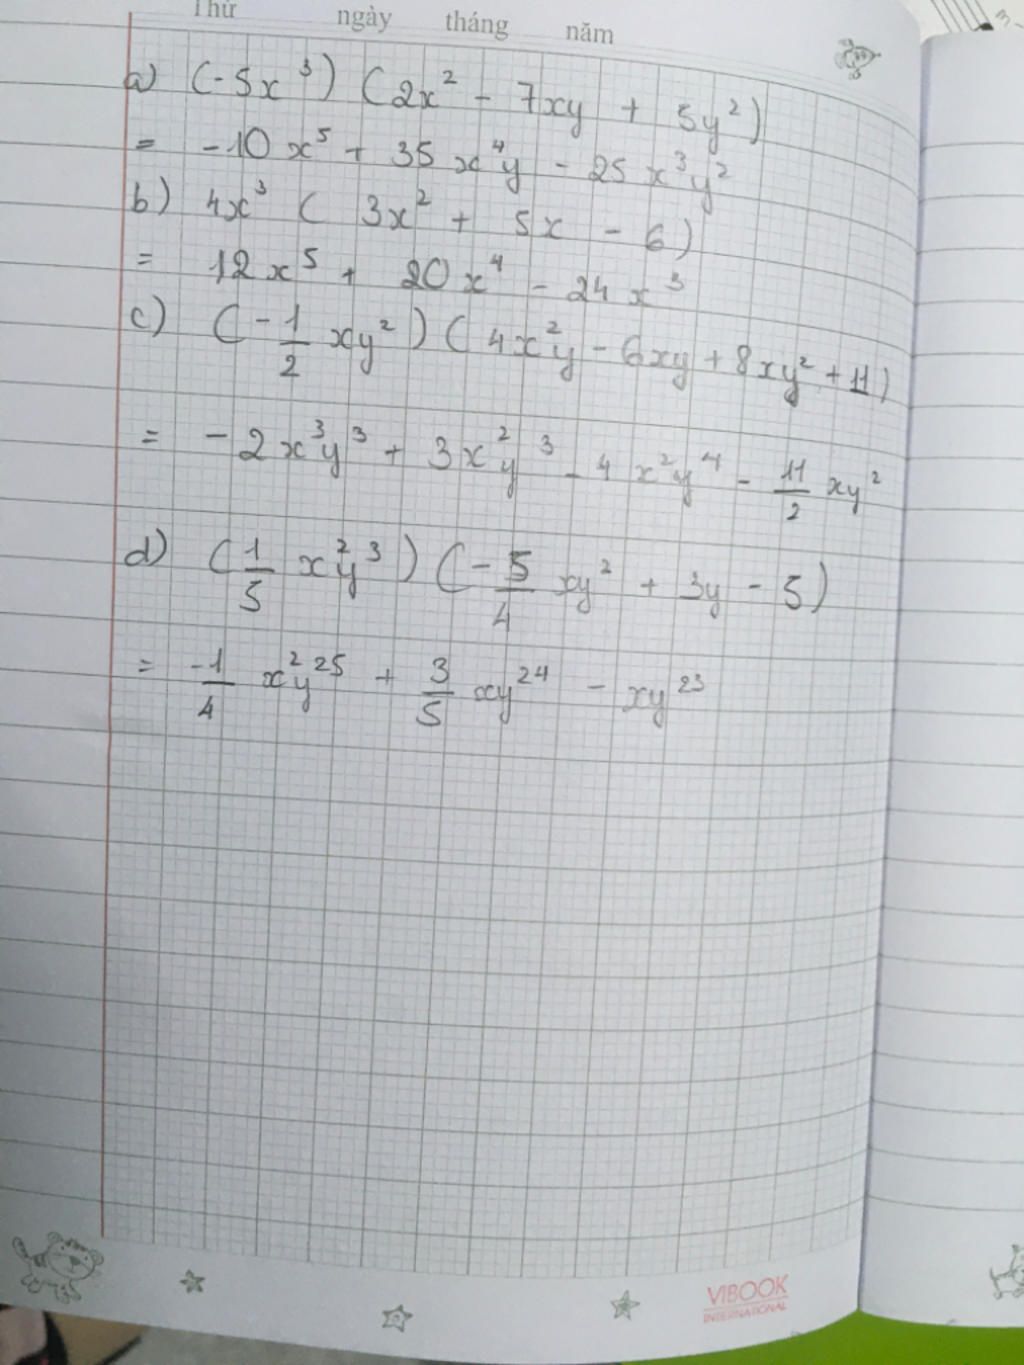 Thứ ngày tháng năm
a) (-5x³) (2x² - 7xy + 5y²)
= -10x⁵ + 35x⁴y - 25x³y²
b) 4x³ (3x² + 5x - 6)
= 12x⁵ + 20x⁴ - 24x³
c) (-1/2 xy²) (4x²y - 6xy + 8xy² + 11)
= -2x³y³ + 3x²y³ - 4x²y⁴ - 11/2 xy²
d) (1/5 x²y³) (-5/4 xy² + 3y - 5)
= -1/4 x²y²⁵ + 3/5 xy²⁴ - xy²³
VIBOOK
INTERNATIONAL